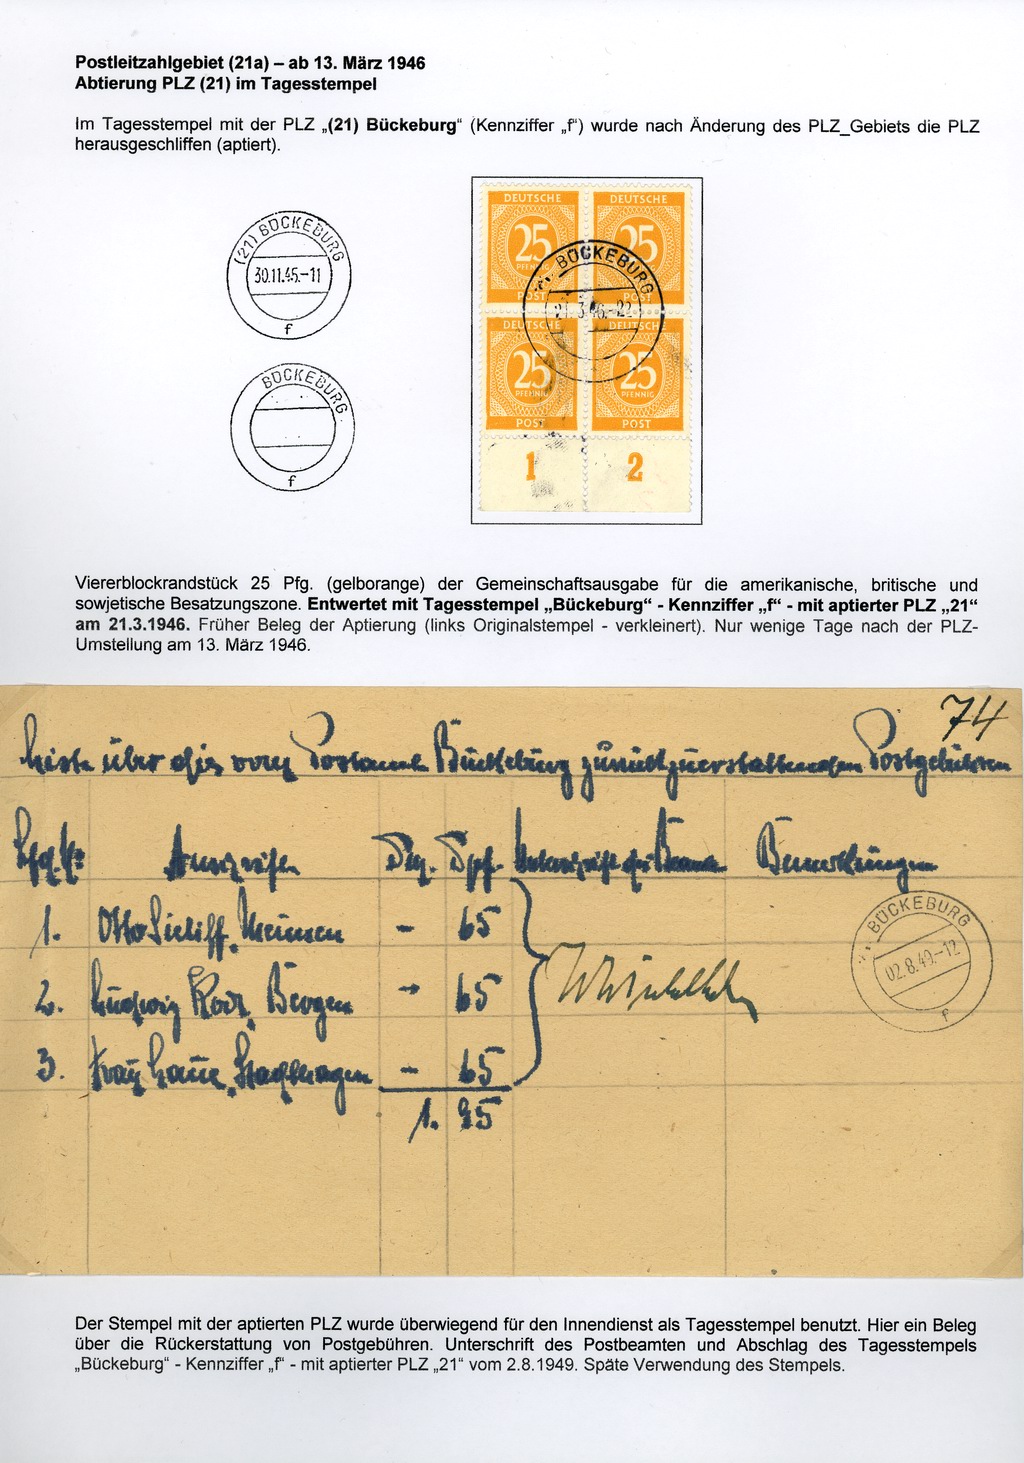 Postleitzahlgebiet (21a) – ab 13. März 1946
Abtierung PLZ (21) im Tagesstempel
Im Tagesstempel mit der PLZ „(21) Bückeburg“ (Kennziffer „f“) wurde nach Änderung des PLZ_Gebiets die PLZ
herausgeschliffen (aptiert).
(21) BÜCKEBURG
30.11.45.-11
f
BÜCKEBURG
f
DEUTSCHE
25
PFENNIG
POST
DEUTSCHE
25
POST
BÜCKEBURG
21.3.46.-22
DEUTSCHE
25
PFENNIG
POST
DEUTSCHE
25
PFENNIG
POST
1 2
Viererblockrandstück 25 Pfg. (gelborange) der Gemeinschaftsausgabe für die amerikanische, britische und
sowjetische Besatzungszone. Entwertet mit Tagesstempel „Bückeburg“ - Kennziffer „f“ - mit aptierter PLZ „21“
am 21.3.1946. Früher Beleg der Aptierung (links Originalstempel - verkleinert). Nur wenige Tage nach der PLZ-
Umstellung am 13. März 1946.
74
Liste über die vom Postamt Bückeburg zurückzuerstattenden Postgebühren
Anschriften Dpf. Bemerkungen
1. Otto Meinsen - 65
2. Ludwig Bergen - 65
3. Frau Stadthagen - 65
1. 95
BÜCKEBURG
02.8.49.-12
f
Der Stempel mit der aptierten PLZ wurde überwiegend für den Innendienst als Tagesstempel benutzt. Hier ein Beleg
über die Rückerstattung von Postgebühren. Unterschrift des Postbeamten und Abschlag des Tagesstempels
„Bückeburg“ - Kennziffer „f“ - mit aptierter PLZ „21“ vom 2.8.1949. Späte Verwendung des Stempels.